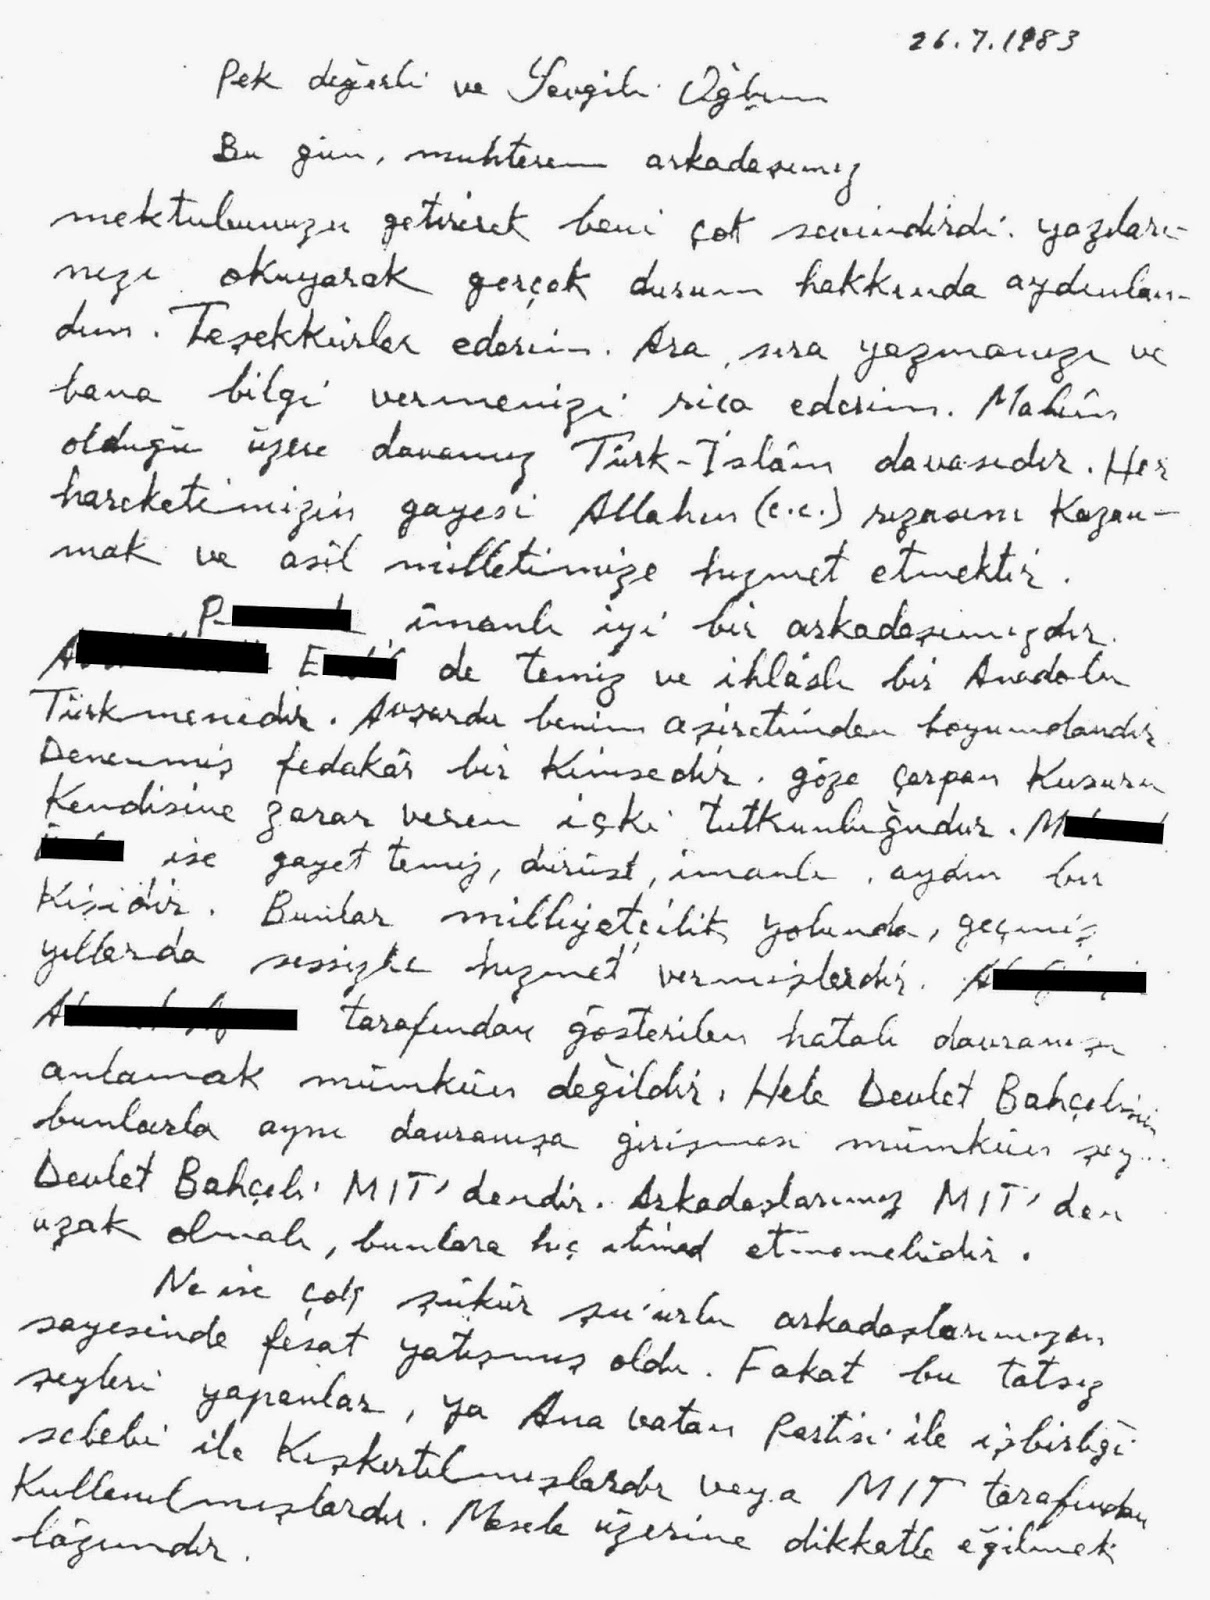 26.7.1983
Pek değerli ve Sevgili Oğlum
Bu gün, muhterem arkadaşımız
mektubunuzu getirerek beni çok sevindirdi. yazıları-
nızı okuyarak gerçek durum hakkında aydınlan-
dım. Teşekkürler ederim. Ara sıra yazmanızı ve
bana bilgi vermenizi rica ederim. Malûm
olduğu üzere davamız Türk-İslâm davasıdır. Her
hareketimizin gayesi Allahın (c.c.) rızasını Kazan-
mak ve asil milletimize hizmet etmektir.
îmanlı iyi bir arkadaşımızdır.
de temiz ve ihlâslı bir Anadolu
Türkmenidir. Avşardır benim aşiretimden boyumdandır.
Denenmiş fedakâr bir Kimsedir. göze çarpan Kusuru
Kendisine zarar veren içki tutkunluğudur.
ise gayet temiz, dürüst, imanlı, aydın bir
Kişidir. Bunlar milliyetçilik yolunda, geçmiş
yıllarda sessizce hizmet vermişlerdir.
tarafından gösterilen hatalı davranışı
anlamak mümkün değildir. Hele Devlet Bahçelinin
bunlarla aynı davranışa girişmesi mümkün şey...
Devlet Bahçeli MIT'dendir. Arkadaşlarımız MIT'den
uzak olmalı, bunlara hiç itimad etmemelidir.
Ne ise çok şükür şu'urlu arkadaşlarımızın
sayesinde fesat yatışmış oldu. Fakat bu tatsız
şeyleri yapanlar, ya Ana vatan Partisi ile işbirliği
sebebi ile Kışkırtılmışlardır veya MIT tarafından
Kullanılmışlardır. Mesele üzerine dikkatle eğilmek
lâzımdır.